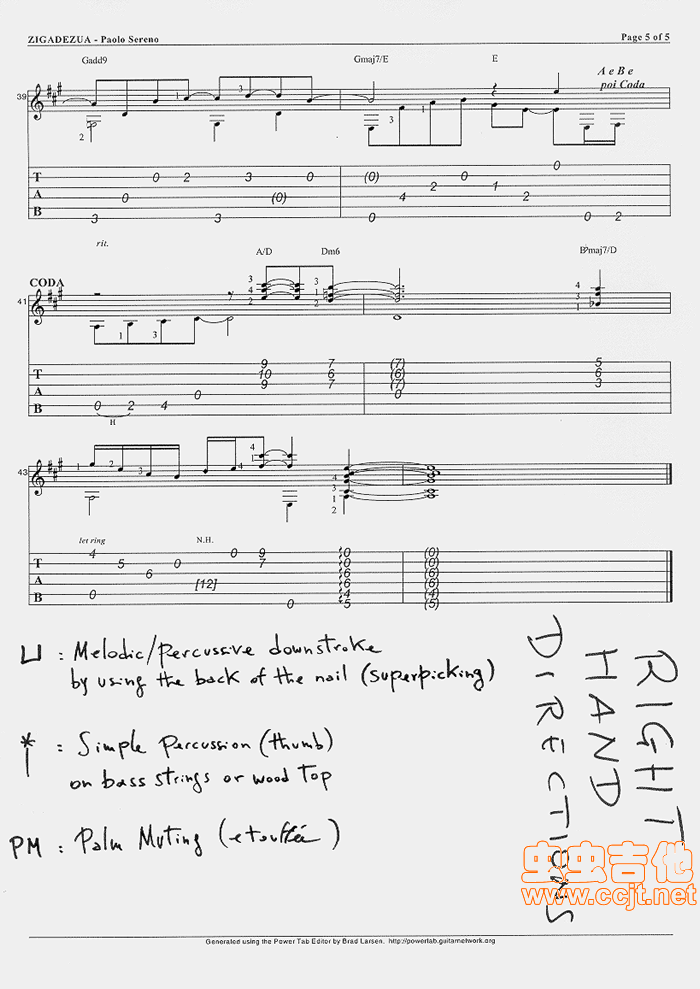 ZIGADEZUA - Paolo Sereno
Page 5 of 5
Gadd9 Gmaj7/E E
A e B e
poi Coda
39
1 3 2
T A B
3 0 0 2 3 3 (0) 0
(0) 0 4 2 0 1 2 0 0 2
rit.
CODA
A/D Dm6 B♭maj7/D
41
T A B
0 2 4 0
9 10 9
7 6 7
(7) (6) (7) 0
5 6 3
H
43
let ring
N.H.
T A B
4 0 5 6 0 [12] 0 9 7 0
0 0 6 6 4 5
(0) (0) (6) (6) (4) (5)
⊔ : Melodic/percussive downstroke
by using the back of the nail (superpicking)
* : Simple Percussion (thumb)
on bass strings or wood top
PM : Palm Muting (etouffée)
RIGHT
HAND
DIRECTIONS
虫虫吉他
www.ccjt.net
Generated using the Power Tab Editor by Brad Larsen. http://powertab.guitarnetwork.org